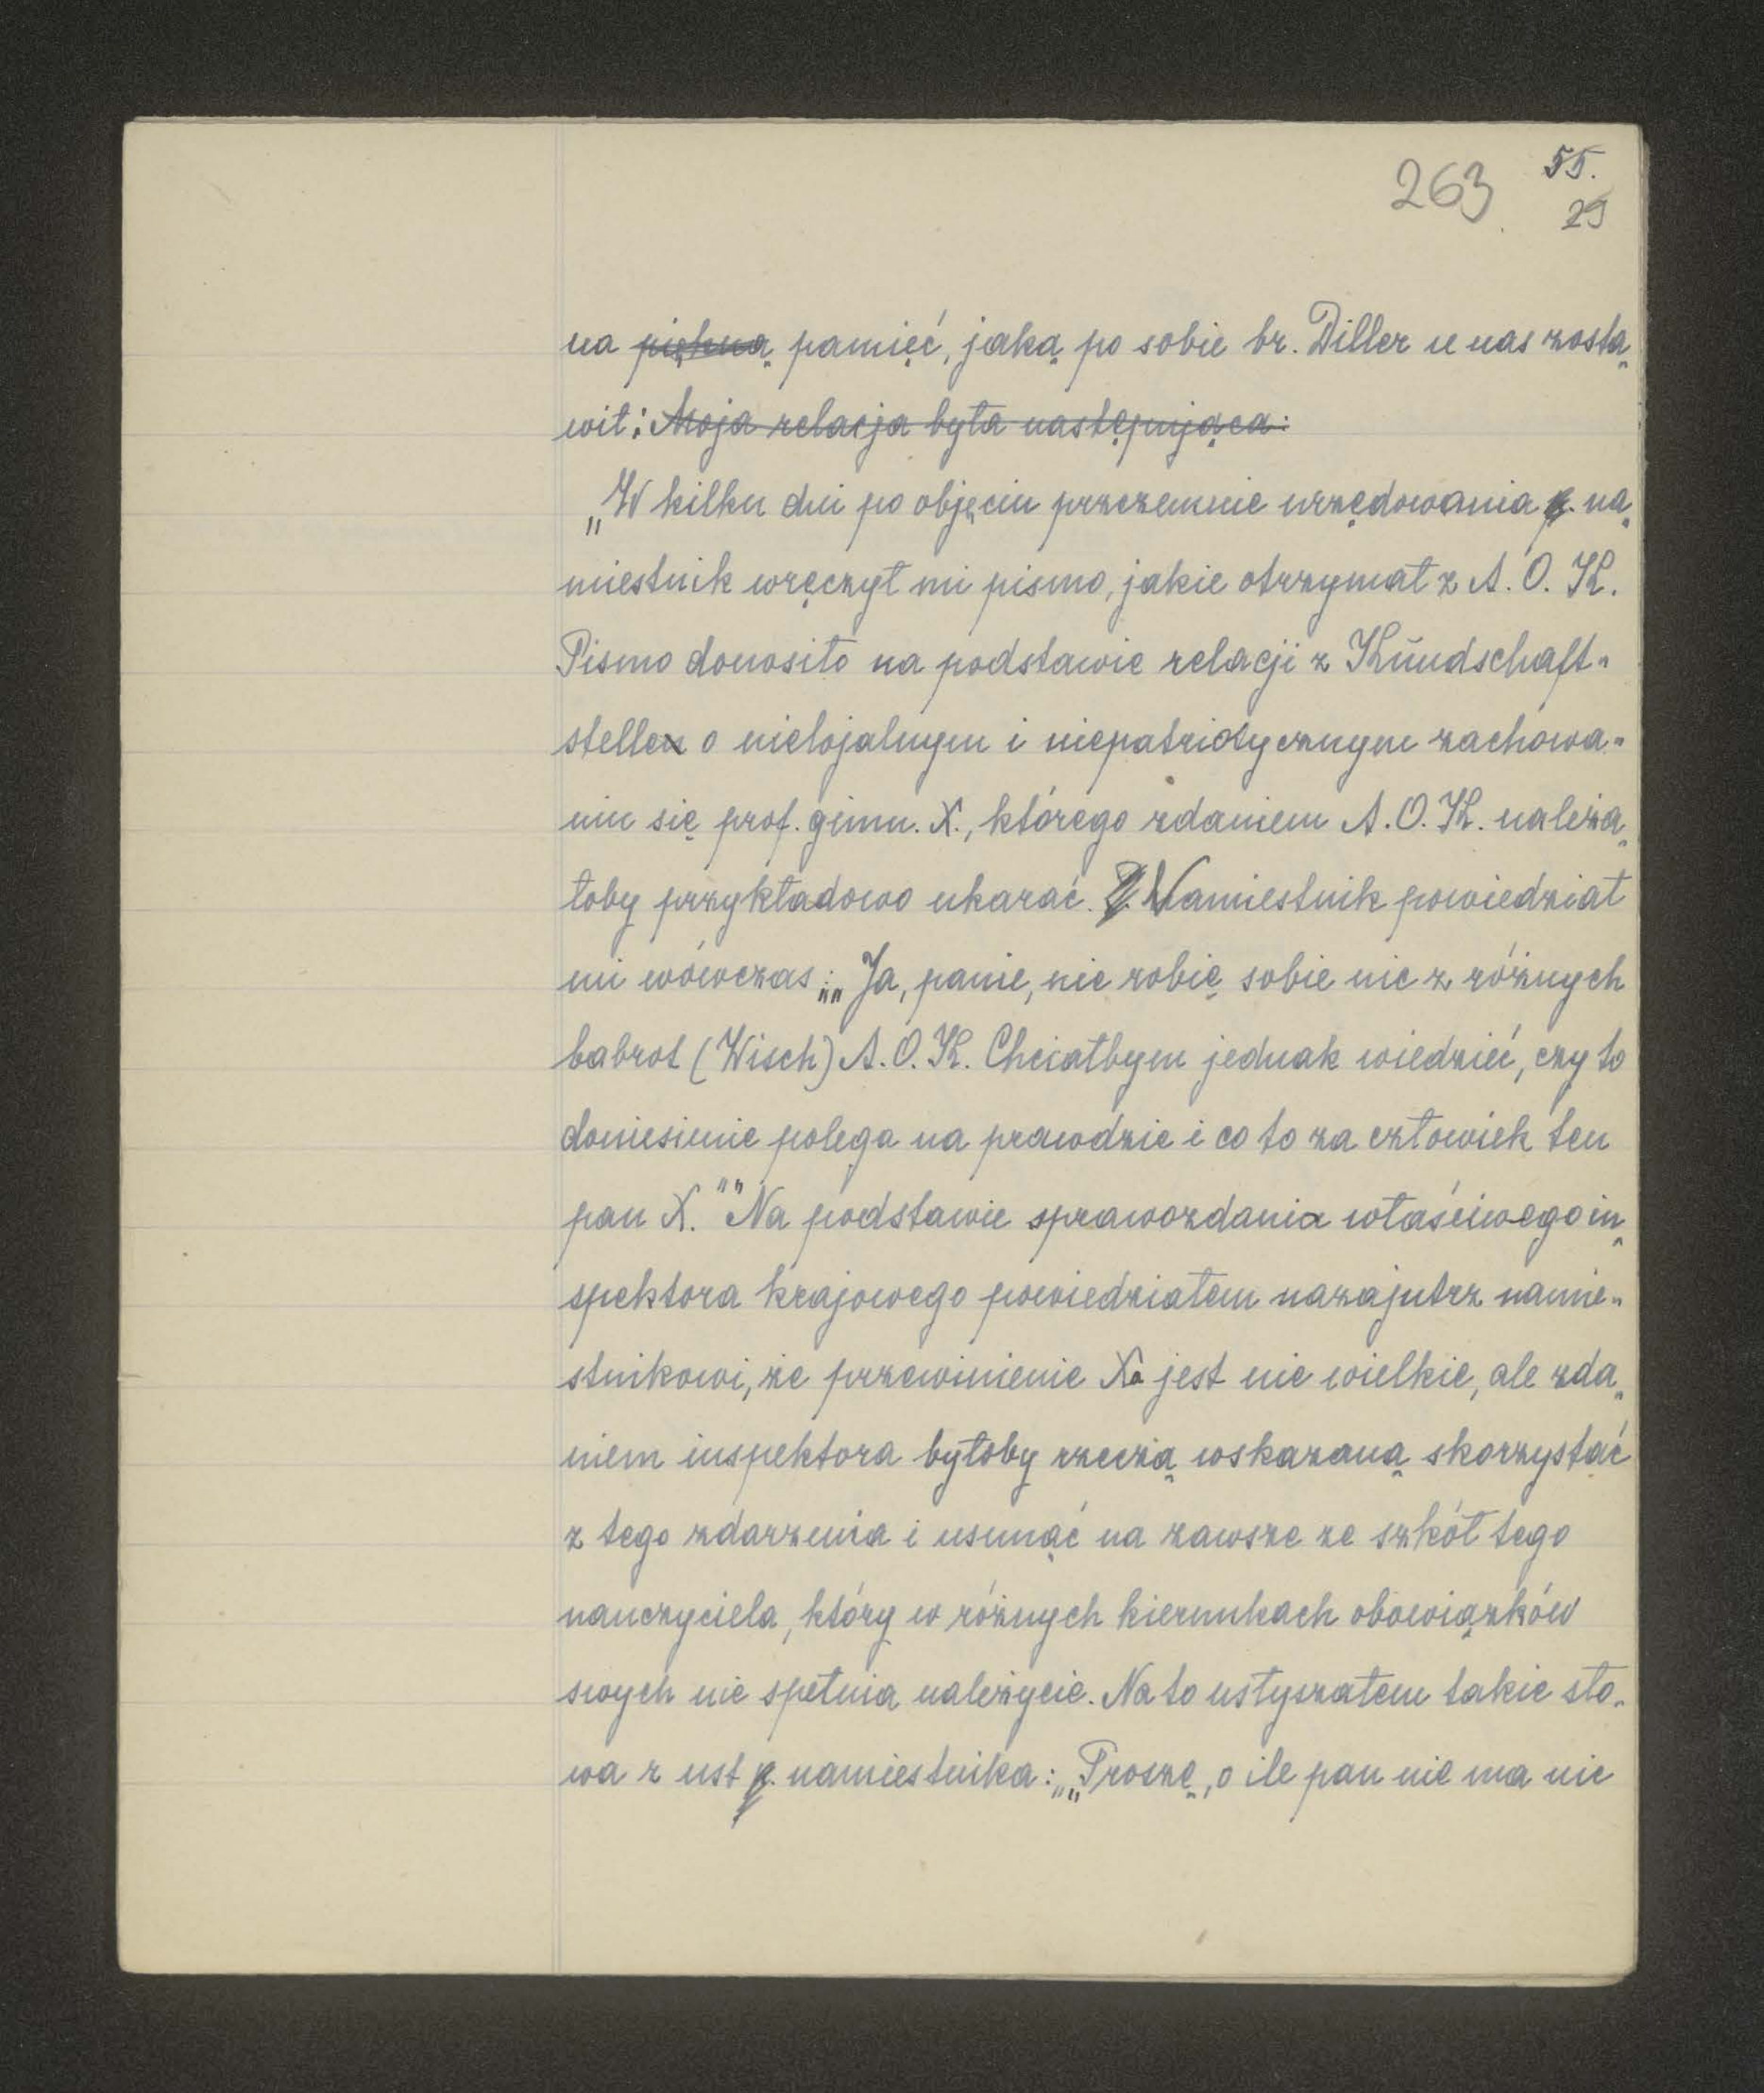 263 55.
29
na piękną pamięć, jaką po sobie br. Diller u nas zosta„
wił: Moja relacja była następująca:
„W kilku dni po objęciu przezemnie urzędowania p. na„
miestnik wręczył mi pismo, jakie otrzymał z A. O. K.
Pismo donosiło na podstawie relacji z Kŭndschaft„
stellen o nielojalnym i niepatriotycznym zachowa„
niu się prof. gimn. X., którego zdaniem A. O. K. należa„
łoby przykładowo ukarać. P. Namiestnik powiedział
mi wówczas: „„Ja, panie, nie robię sobie nic z różnych
babrot (Wisch) A. O. K. Chciałbym jednak wiedzieć, czy to
doniesienie polega na prawdzie i co to za człowiek ten
pan X."" Na podstawie sprawozdania właściwego in„
spektora krajowego powiedziałem nazajutrz namie„
stnikowi, że przewinienie Xa jest nie wielkie, ale zda„
niem inspektora byłoby rzeczą wskazaną skorzystać
z tego zdarzenia i usunąć na zawsze ze szkół tego
nauczyciela, który w różnych kierunkach obowiązków
swych nie spełnia należycie. Na to usłyszałem takie sło„
wa z ust p. namiestnika: „„Proszę, o ile pan nie ma nic